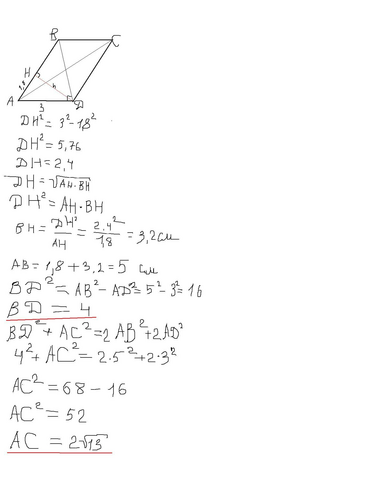 B
C
H
1,8
h
A
3
D
DH² = 3² - 1,8²
DH² = 5,76
DH = 2,4
DH = √AH·BH
DH² = AH·BH
BH = DH²/AH = 2.4²/1,8 = 3,2см
AB = 1,8 + 3,2 = 5 см
BD² = AB² - AD² = 5² - 3² = 16
BD = 4
BD² + AC² = 2AB² + 2AD²
4² + AC² = 2·5² + 2·3²
AC² = 68 - 16
AC² = 52
AC = 2√13